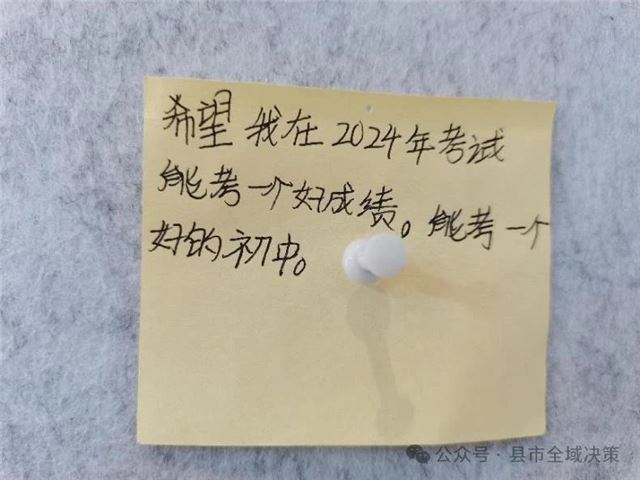 希望我在2024年考试
能考一个好成绩。能考一个
好的初中。
公众号·县市全域决策